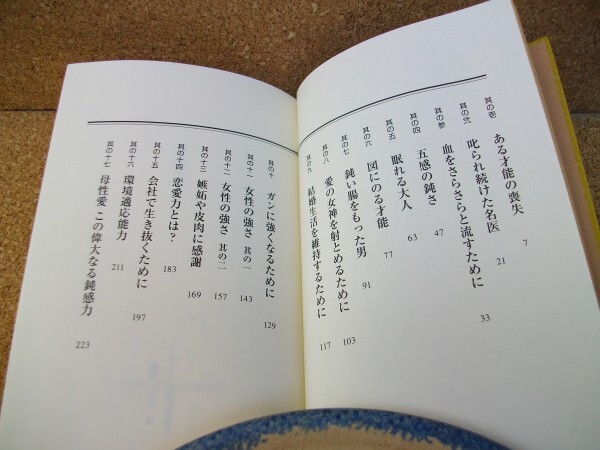 其の壱 ある才能の喪失 7
其の弐 叱られ続けた名医 21
其の参 血をさらさらと流すために 33
其の四 五感の鈍さ 47
其の五 眠れる大人 63
其の六 図にのる才能 77
其の七 鈍い腸をもった男 91
其の八 愛の女神を射とめるために 103
其の九 結婚生活を維持するために 117
其の十 ガンに強くなるために 129
其の十一 女性の強さ 其の一 143
其の十二 女性の強さ 其の二 157
其の十三 嫉妬や皮肉に感謝 169
其の十四 恋愛力とは? 183
其の十五 会社で生き抜くために 197
其の十六 環境適応能力 211
其の十七 母性愛 この偉大なる鈍感力 223